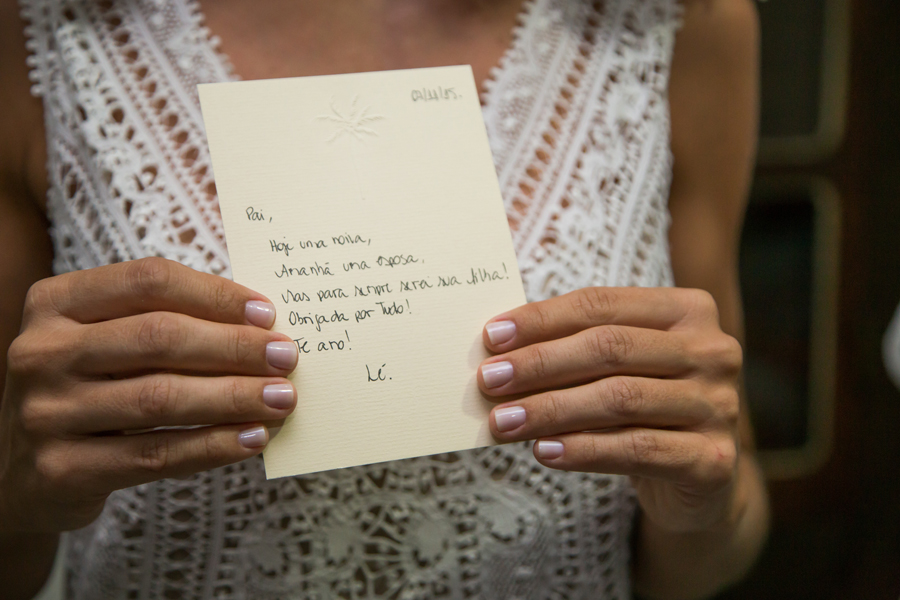 Pai,
Hoje uma noiva,
Amanhã uma esposa,
Mas para sempre serei sua filha!
Obrigada por Tudo!
Te amo!
Lé.